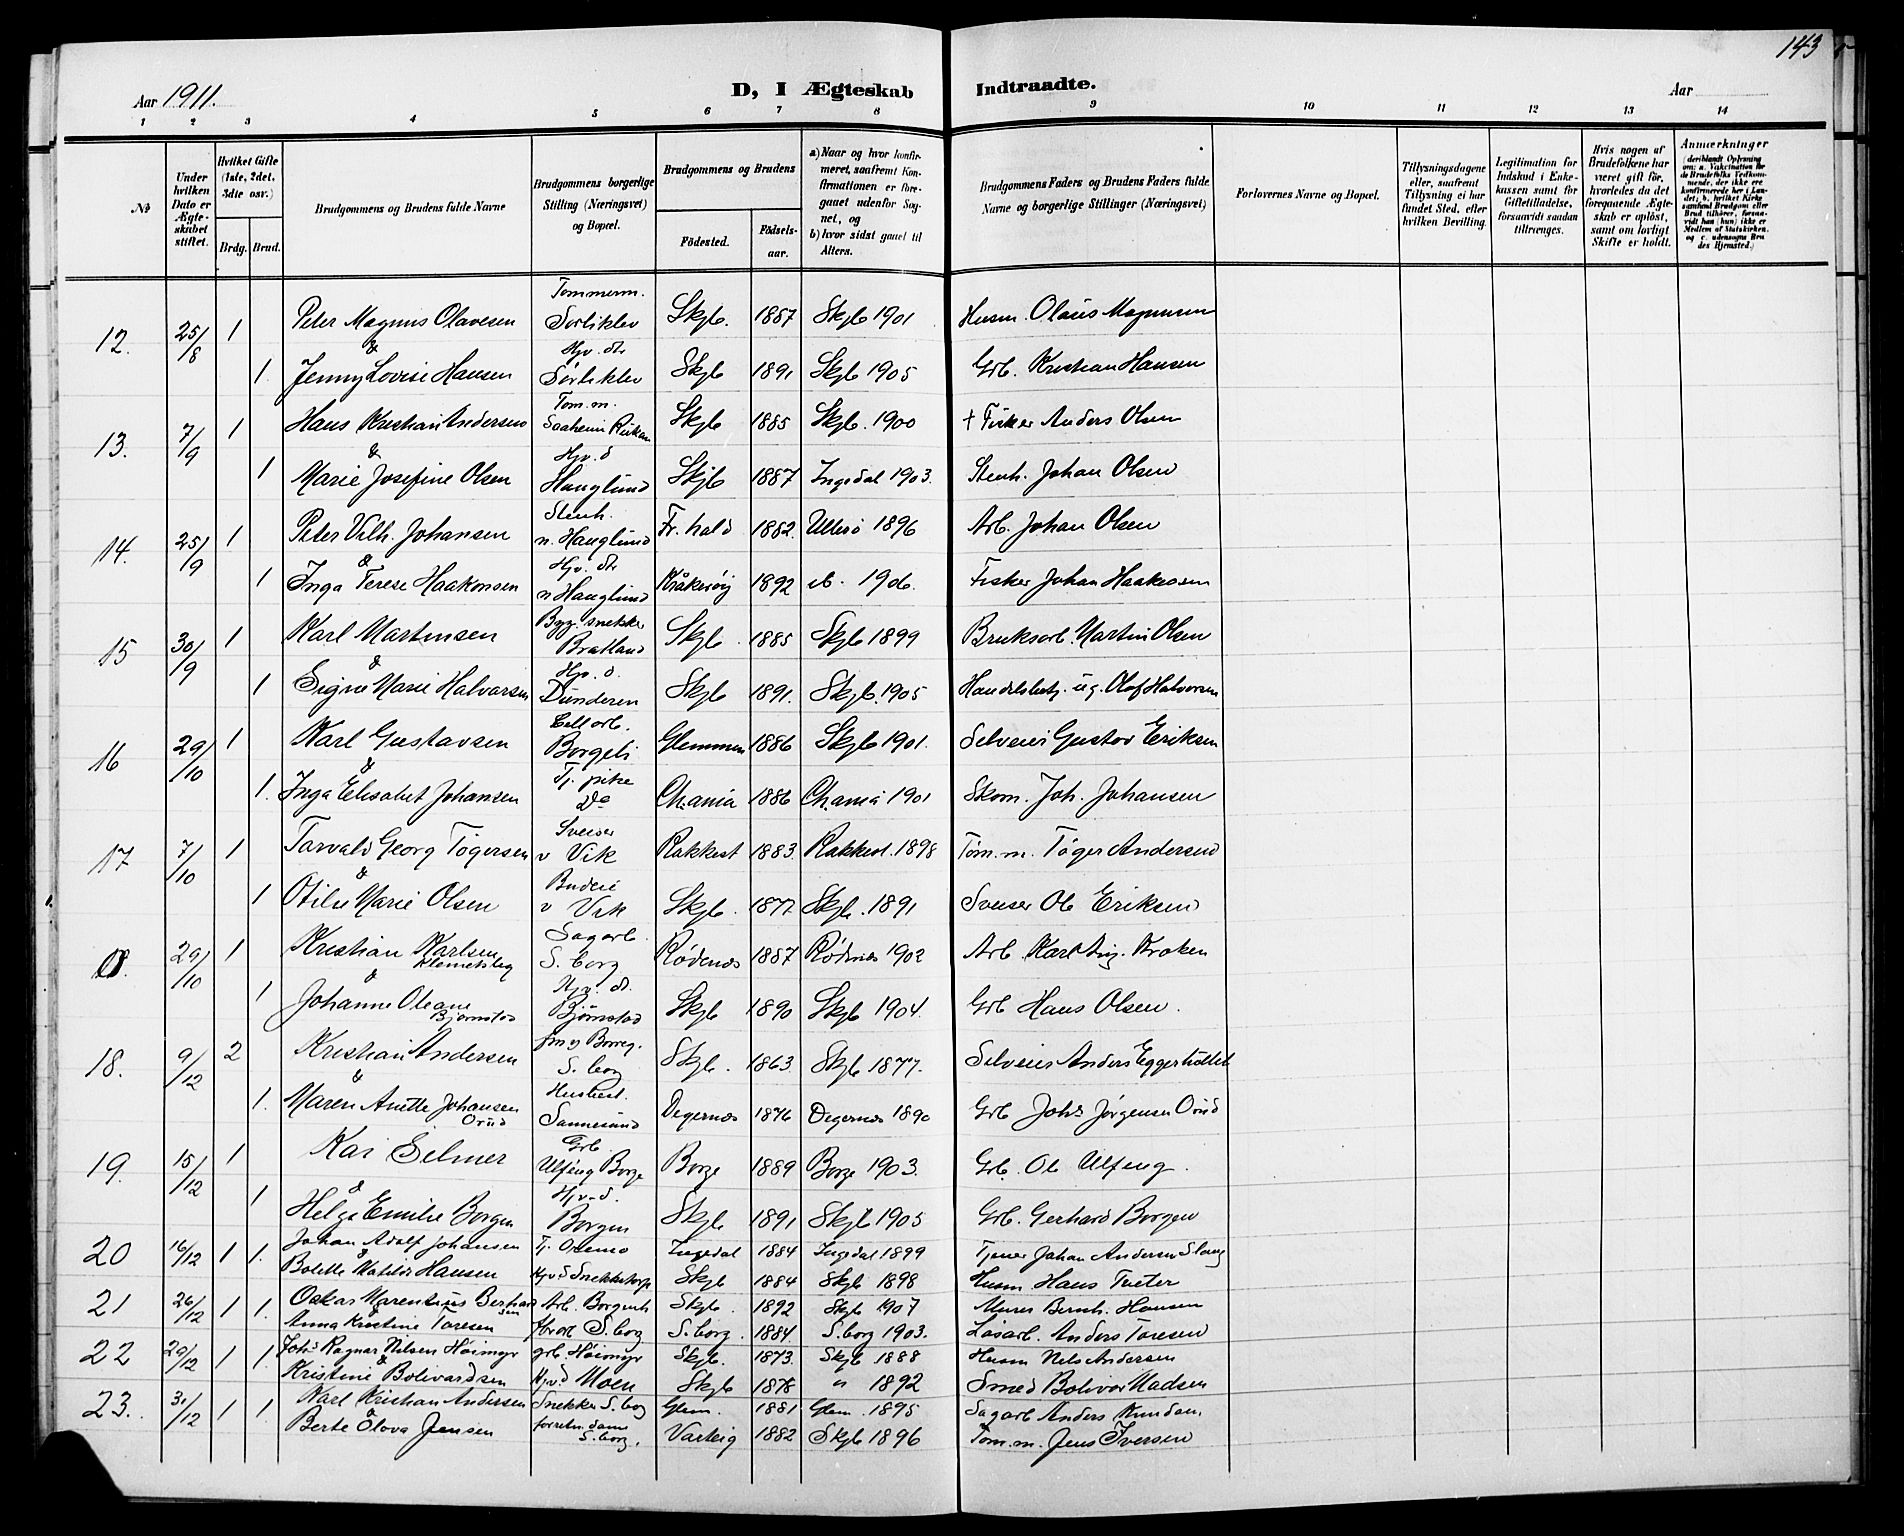 143
Aar 1911.
D, I Ægteskab Indtraadte.
Aar
1 2 3 4 5 6 7 8 9 10 11 12 13 14
No
Under hvilken Dato er Ægteskabet stiftet.
Hvilket Gifte (1ste, 2det, 3die osv.)
Brdg. Brud.
Brudgommens og Brudens fulde Navne
Brudgommens borgerlige Stilling (Næringsvei) og Bopæl.
Brudgommens og Brudens
Fødested. Fødselsaar.
a) Naar og hvor konfirmeret, saafremt Konfirmationen er foregaaet udenfor Sognet, og
b) hvor sidst gaaet til Alters.
Brudgommens Faders og Brudens Faders fulde Navne og borgerlige Stillinger (Næringsvei)
Forlovernes Navne og Bopæl.
Tillysningsdagene eller, saafremt Tillysning ei har fundet Sted, efter hvilken Bevilling.
Legitimation for Indskud i Enkekassen samt for Giftetilladelse, forsaavidt saadan tiltrænges.
Hvis nogen af Brudefolkene har været gift før, hvorledes da det foregaaende Ægteskab er opløst, samt om lovligt Skifte er holdt.
Anmærkninger
12. 25/8 1 Peter Magnus Olavesen Tommerm. Sørliklev Skjb. 1887 Skjb 1901 Husm. Olaus Magnusen
& 1. Jenny Lovise Hansen Hjv. dtr Sørliklev Skjb 1891 Skjb 1905 Grb. Kristian Hansen
13. 7/9 1 Hans Kristian Andersen Tom. m. Saaheim Rjukan Skjb 1885 Skjb. 1900 + Fisker Anders Olsen
& 1 Marie Josefine Olsen Hjv. d Hauglund Skjb 1887 Ingedal 1903. Stenh. Johan Olsen
14. 25/9 1 Peter Vilh. Johansen Stenh. n. Hauglund Fr. hald 1882. Ullerø 1896 Arb. Johan Olsen
& 1 Inga Terese Haakonsen Hjv. dtr n Hauglund Kråkerøy 1892 ib. 1906. Fisker Johan Haakonsen
15 30/9 1 Karl Martinsen Byg. snekker Bratland Skjb 1885 Skjb 1899 Bruksarb. Martin Olsen
& 1 Signe Marie Halvorsen Hjv. d. Dunderen Skjb 1891. Skjb. 1905 Handelsbetj. ug. Olaf Halvorsen
16 29/10 1 Karl Gustavsen Cell arb. Borgeli Glemmen 1886 Skjb 1901. Selveier Gustav Eriksen
& 1. Inga Elisabet Johansen Tj. pike do Ch.ania 1886 Ch.ania 1901 Skom. Joh. Johansen
17 7/10 1 Torvald Georg Tøgersen Sveiser v Vik Rakkest 1883. Rakkest. 1898 Tøm. m. Tøger Andersen
& 1 Otilie Marie Olsen Budeie v Vik Skjb. 1877 Skjb. 1891 Sveiser Ole Eriksen
29/10 1 Kristian Karlsen Klemetsby Sagarb. S. borg Rødenes 1887 Rødenes 1902 Arb. Karl Aug. Kroken
& 1 Johanne Oleane Bjørnstad Hjv. dt. Bjørnstad Skjb 1890 Skjb 1904. Grb Hans Olsen.
18. 9/12 2 Kristian Andersen S. borg Skjb. 1863 Skjb 1877. Selveier Anders
& 1. Maren Anette Johansen Orud Husbest. Sannesund Degernes 1876 Degernes 1890 Grb Johs Jørgensen Orud
19. 15/12 1 Kai Eilmer Grb. Ulfeng Borge Borge 1889 Borge 1903. Grb. Ole Ulfeng.
& 1 Helga Emilie Borgen Hjv. d. Borgen Skjb 1891 Skjb 1905 Grb. Gerhard Borgen
20 16/12 1 1. Johan Adolf Johansen Tj. Ingedal 1884 Ingedal 1899 Tjener Johan Andersen
& Bolette Matilde Hansen Hjv d Snekkestorp Skjb 1884 Skjb 1898 Husm. Hans Tveter
21 26/12 1 1. Oskar Marentius Bernhardsen Arb. Skjb. 1892 Skjb 1907 Murer Bernh. Hansen
Anna Kristine Toresen S. borg S. borg. 1884. S. borg 1903. Løsarb. Anders Toresen
22 29/12 1 1. Johs Ragnar Nilsen Høimyr grb. Høimyr Skjb. 1873. Skjb 1888 Husm Nils Andersen
& Kristine Bolivardsen Hjv. d Moen Skjb 1878 " 1892 Smed Bolivar Madsen
23. 31/12 1 1 Karl Kristian Andersen Snekker S. borg Glem. 1881 Glem. 1895 Sagarb Anders
& Berte Olava Jensen forretn. dame S. borg. Varteig 1882 Skjb 1896 Tom. m. Jens Iversen